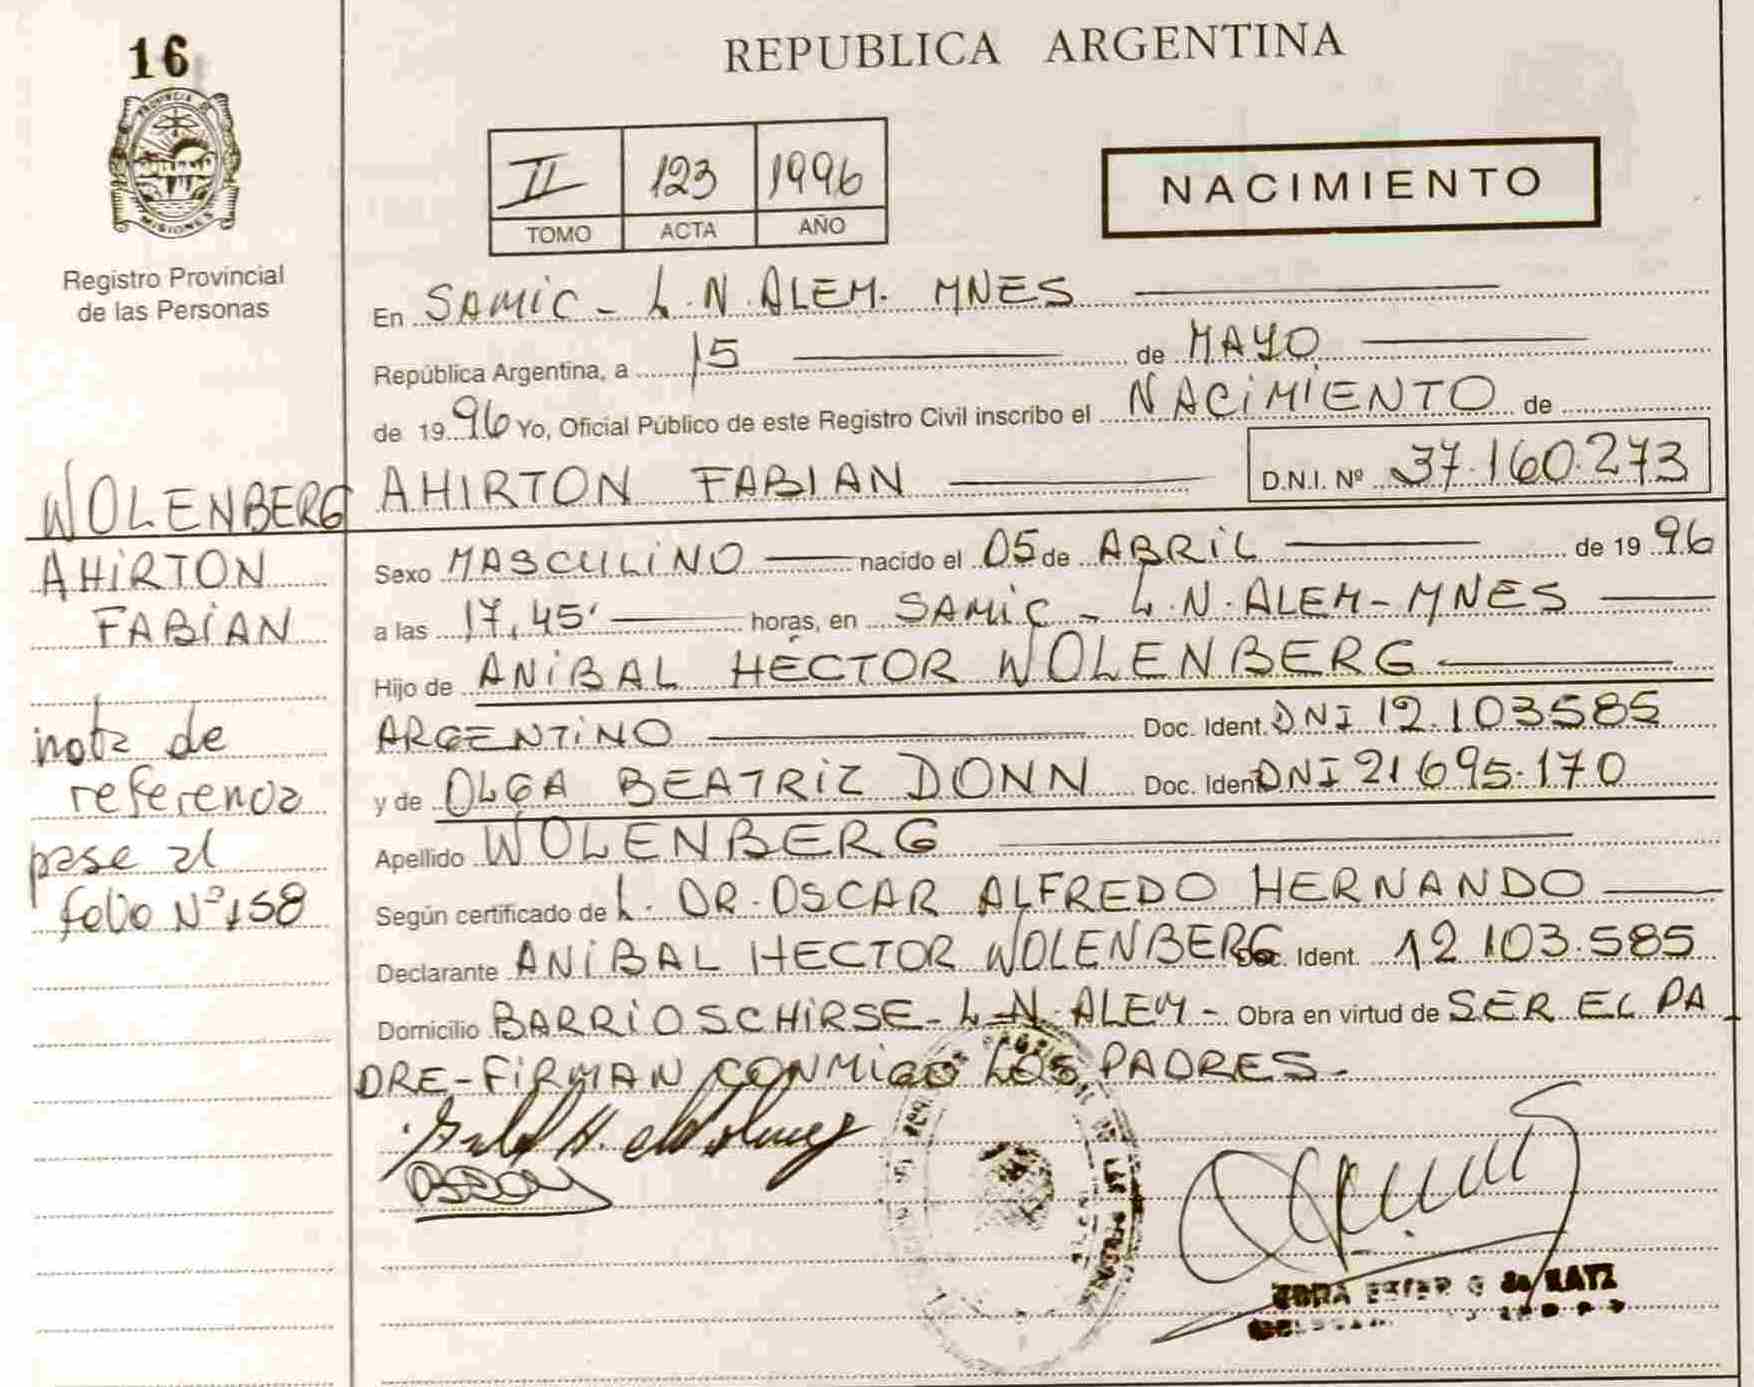 16
PROVINCIA DE
MISIONES
Registro Provincial
de las Personas
WOLENBERG
AHIRTON
FABIAN
nota de
referencia
pase al
folio Nº 158
REPUBLICA ARGENTINA
II 123 1996
TOMO ACTA AÑO
NACIMIENTO
En SAMIC - L.N.ALEM. MNES
República Argentina, a 15 de MAYO
de 1996 Yo, Oficial Público de este Registro Civil inscribo el NACIMIENTO de
AHIRTON FABIAN D.N.I. Nº 37.160.273
Sexo MASCULINO nacido el 05 de ABRIL de 1996
a las 17,45' horas, en SAMIC - L.N.ALEM - MNES
Hijo de ANIBAL HECTOR WOLENBERG
ARGENTINO Doc. Ident. DNI 12.103585
y de OLGA BEATRIZ DONN Doc. Ident DNI 21695.170
Apellido WOLENBERG
Según certificado de L. DR. OSCAR ALFREDO HERNANDO
Declarante ANIBAL HECTOR WOLENBERG Doc. Ident. 12 103.585
Domicilio BARRIO SCHIRSE - L.N. ALEM - Obra en virtud de SER EL PA
DRE - FIRMAN CONMIGO LOS PADRES.
de KATZ